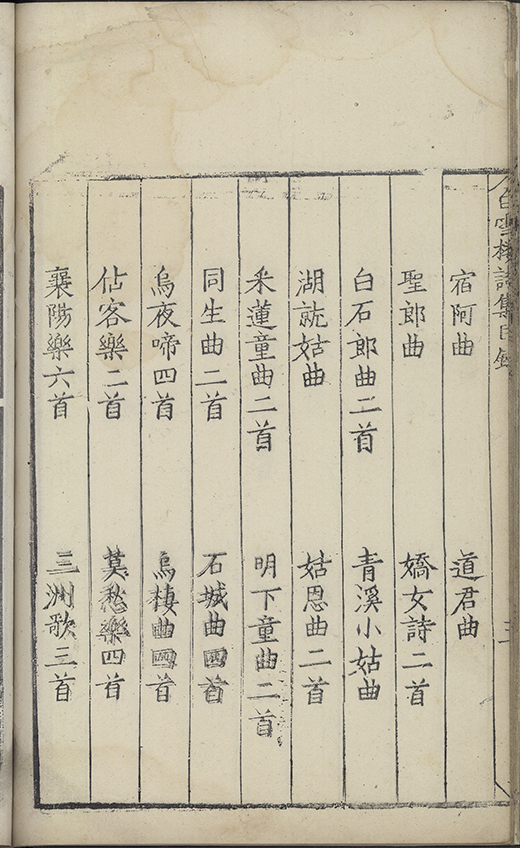 白雪樓詩集目錄
宿阿曲　道君曲
聖郎曲　嬌女詩二首
白石郎曲二首　青溪小姑曲
湖就姑曲　姑恩曲二首
采蓮童曲二首　明下童曲二首
同生曲二首　石城曲四首
烏夜啼四首　烏棲曲四首
估客樂二首　莫愁樂四首
襄陽樂六首　三洲歌三首